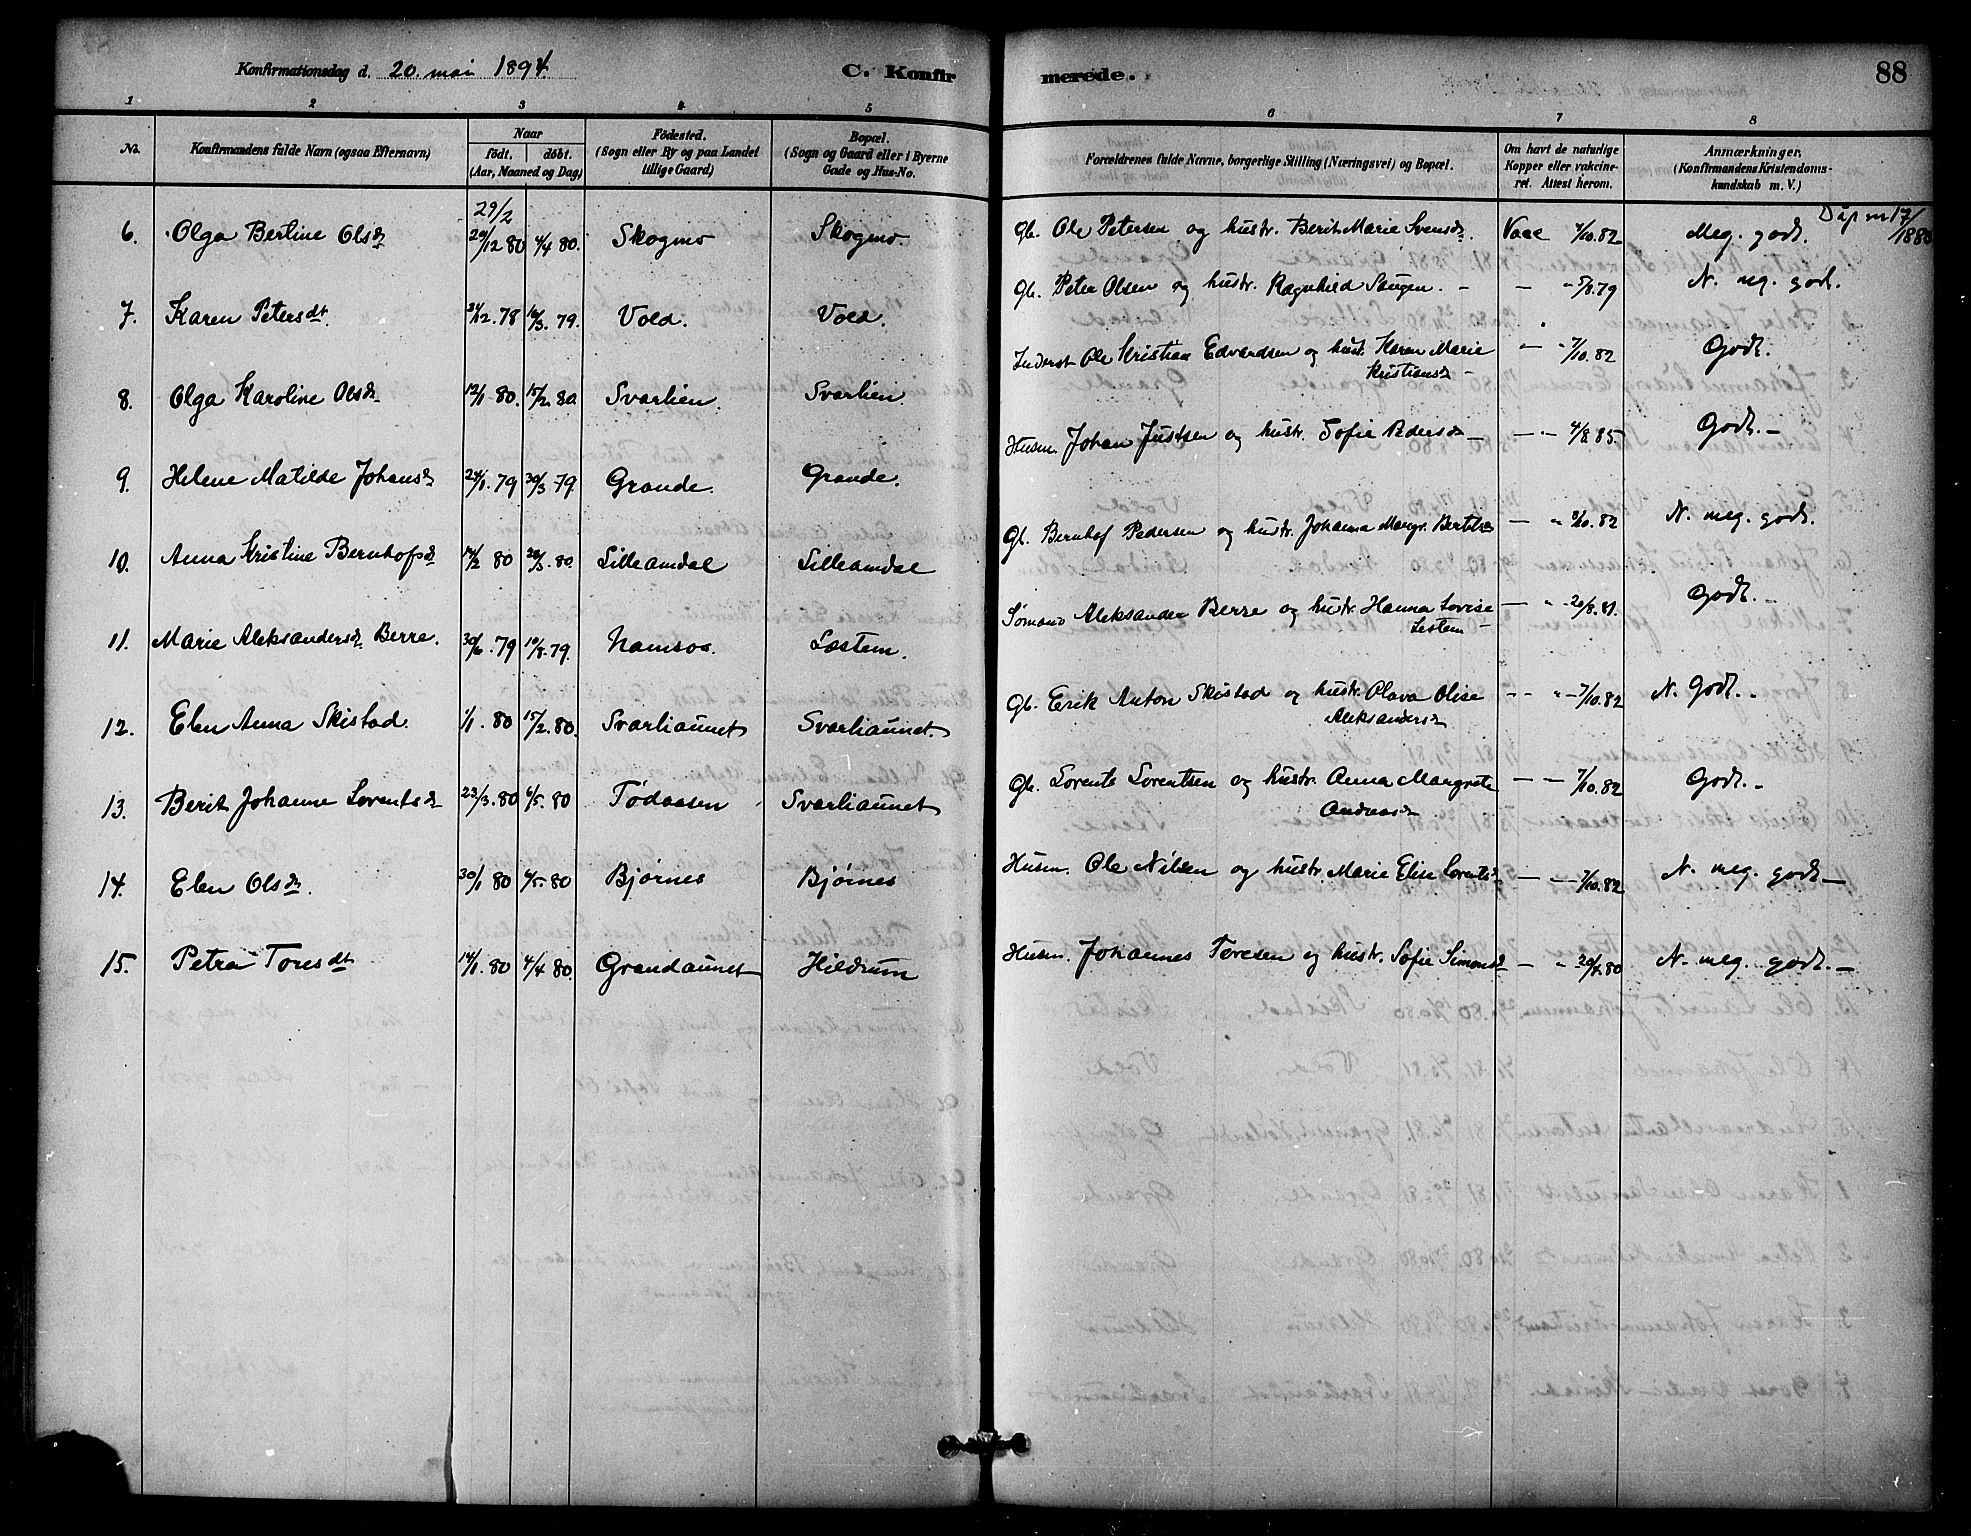 Konfirmationsdag d. 20. mai 1894. C. Konfir merede. 88
1 2 3 4 5 6 7 8
No. Konfirmandens fulde Navn (ogsaa Efternavn) Naar født. døbt. (Aar, Maaned og Dag) Födested. (Sogn eller By og paa Landet tillige Gaard) Bopæl. (Sogn og Gaard eller i Byerne Gade og Hus-No. Forældrenes fulde Navne, borgerlige Stilling (Næringsvei) og Bopæl. Om havt de naturlige Kopper eller vakcineret. Attest herom. Anmærkninger. (Konfirmandens Kristendomskundskab m. V.)
29/2 Dåp nr 17/1880
6. Olga Bertine Olsdr 29/12 80 4/4 80. Skogmo Skogmo. Gb. Ole Petersen og hustr. Berit Marie Svensdr. Vacc 7/10.82 Meg. godt.
7. Karen Petersdt. 31/12.78 16/3.79. Vold. Vold. Gb. Peter Olsen og hustr. Ragnhild Saugen. — — " 5/8.79 N. meg. godt.
8. Olga Karoline Olsdr 12/1 80. 15/2.80. Svarlien. Svarlien. Inderst Ole Kristian Edvardsen og hust. Karen Marie Kristiansdr — — " 7/10.82 Godt.
9. Helene Matilde Johansdr 24/1.79 30/3-79 Grande. Grande. Husm. Johan Justsen og hustr. Sofie Pedersdr — — — 4/8.85. Godt. —
10. Anna Kristine Bernhofsdr 14/2 80 28/3.80. Lilleamdal Lilleamdal Gb. Bernhof Pedersen og hustr. Johanna Margr. Bertelsdr — " 8/10.82 N. meg. godt.
11. Marie Aleksandersdr. Berre. 30/6.79 10/8.79. Namsos. Lestem. Sømand Aleksander Berre og hustr. Hanna Lovise Lestem — — " 26/8.81. Godt. —
12. Elen Anna Skistad. 1/1.80 15/2.80. Svarliaunet Svarliaunet. Gb. Erik Anton Skistad og hustr. Olava Olise Aleksandersdr — " — 7/10.82 N. Godt. -
13. Berit Johanne Lorentsdr 23/3.80 4/5.80 Tødaasen Svarliaunet Gb. Lorents Lorentsen og hustr. Anna Margrete Andreasdr — — 7/10.82 Godt. -
14. Elen Olsdr. 30/1 80 4/5.80 Bjørnes Bjørnes Husm. Ole Nilsen og hustr. Marie Elise Lorentsdr — — 7/10.82 N. meg. godt —
15. Petra Toresdt 14/1.80 4/4 80 Grandaunet Hildrum Husm. Johannes Toresen og hustr. Sofie Simonsdr — " 20/8.80 N. meg. godt. —